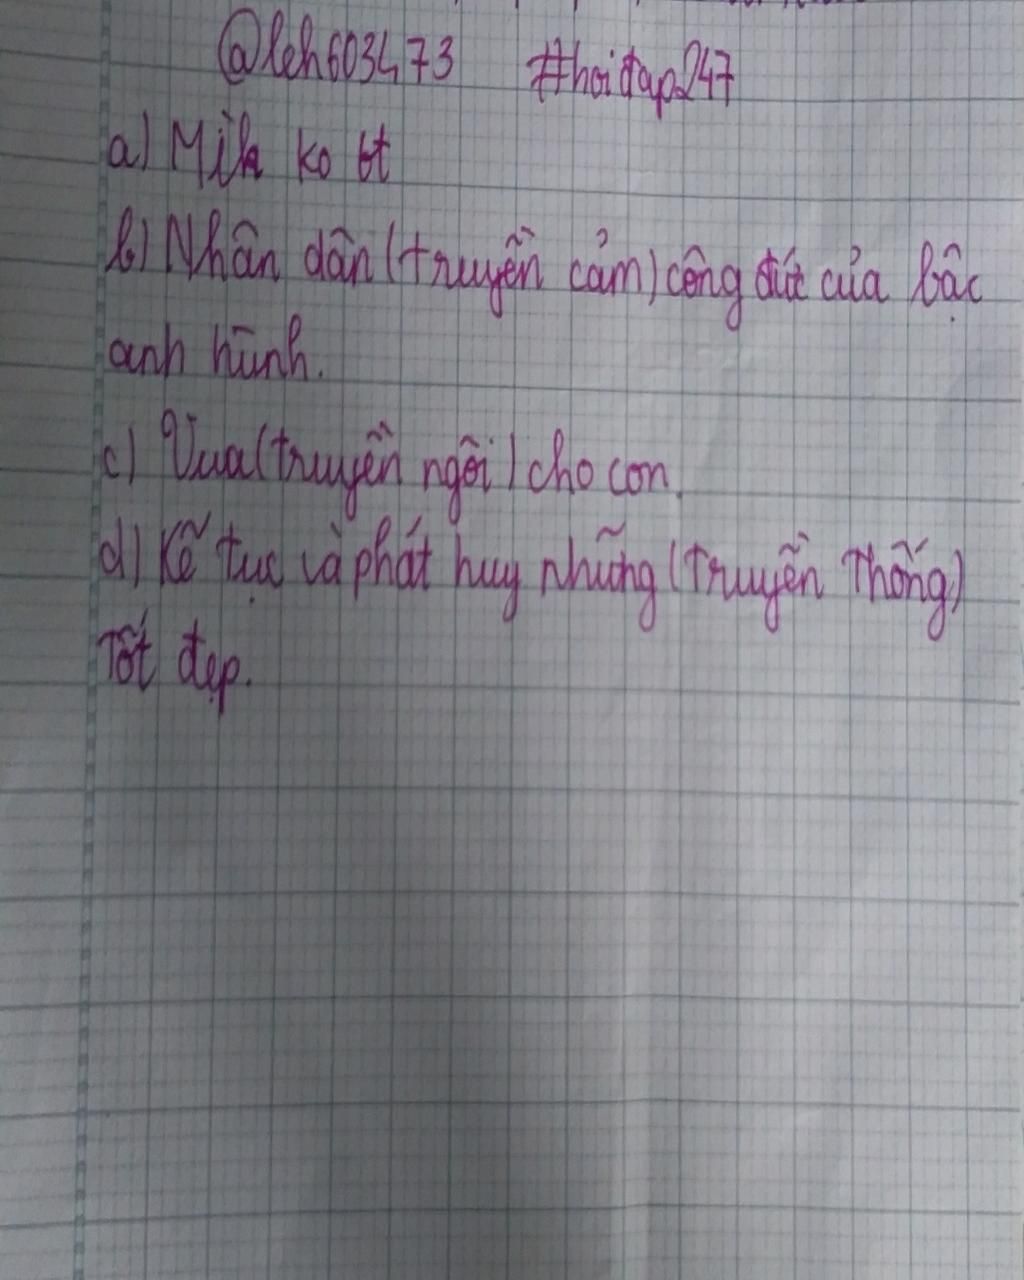 @leh603473 #hoidap247
a) Mik ko bt
b) Nhân dân (truyền cảm) công đức của bậc
anh hùnh.
c) Vua (truyền ngôi) cho con.
d) Kế tục và phát huy những (Truyền Thống)
Tốt đẹp.